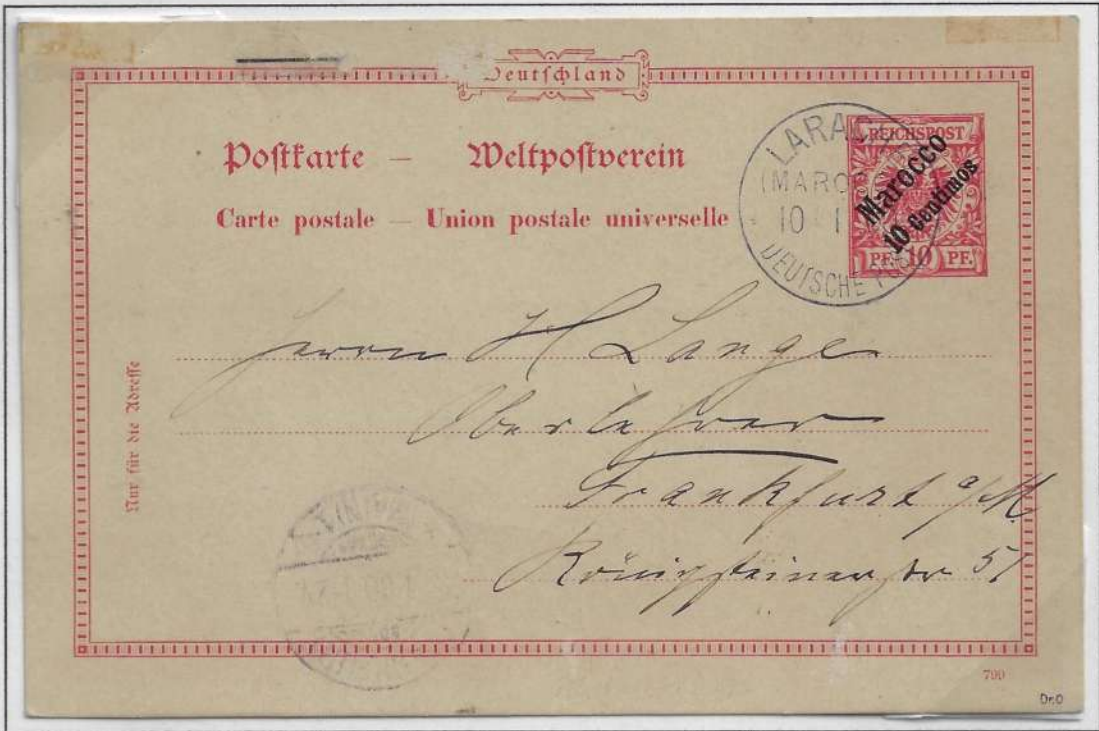 Deutschland
Postkarte — Weltpostverein
Carte postale — Union postale universelle
LARAC
(MAROC
10 1
DEUTSCHE PO
REICHSPOST
Marocco
10 Centimos
PF. 10 PF.
Nur für die Adresse
Herrn H Lange
Oberlehrer
Frankfurt a/M.
Königsteiner str 51
799
Dr.O